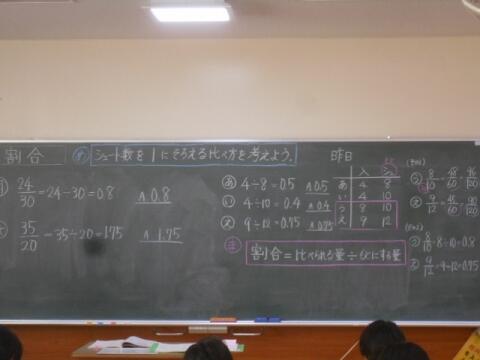 割合
め シュート数を1にそろえる比べ方を考えよう。
24/30=24÷30=0.8 A 0.8
35/20=35÷20=1.75 A 1.75
あ 4÷8=0.5 A 0.5
い 4÷10=0.4 A 0.4
え 9÷12=0.75 A 0.75
ま 割合=比べられる量÷もとにする量
昨日
あ 4 8
い 4 10
う 8 10
え 9 12
う 8/10=48/60
え 9/12=45/60
う 8/10=8÷10=0.8
え 9/12=9÷12=0.75